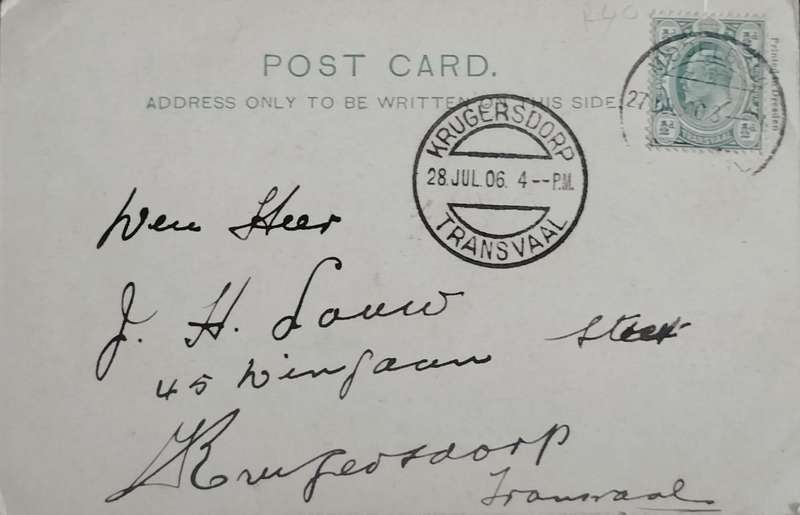 R40
POST CARD.
ADDRESS ONLY TO BE WRITTEN ON THIS SIDE.
Printed in Dresden
27
KRUGERSDORP
28.JUL.06. 4--P.M.
TRANSVAAL
Den Heer
J. H. Louw
45 Street
Krugersdorp
Transvaal